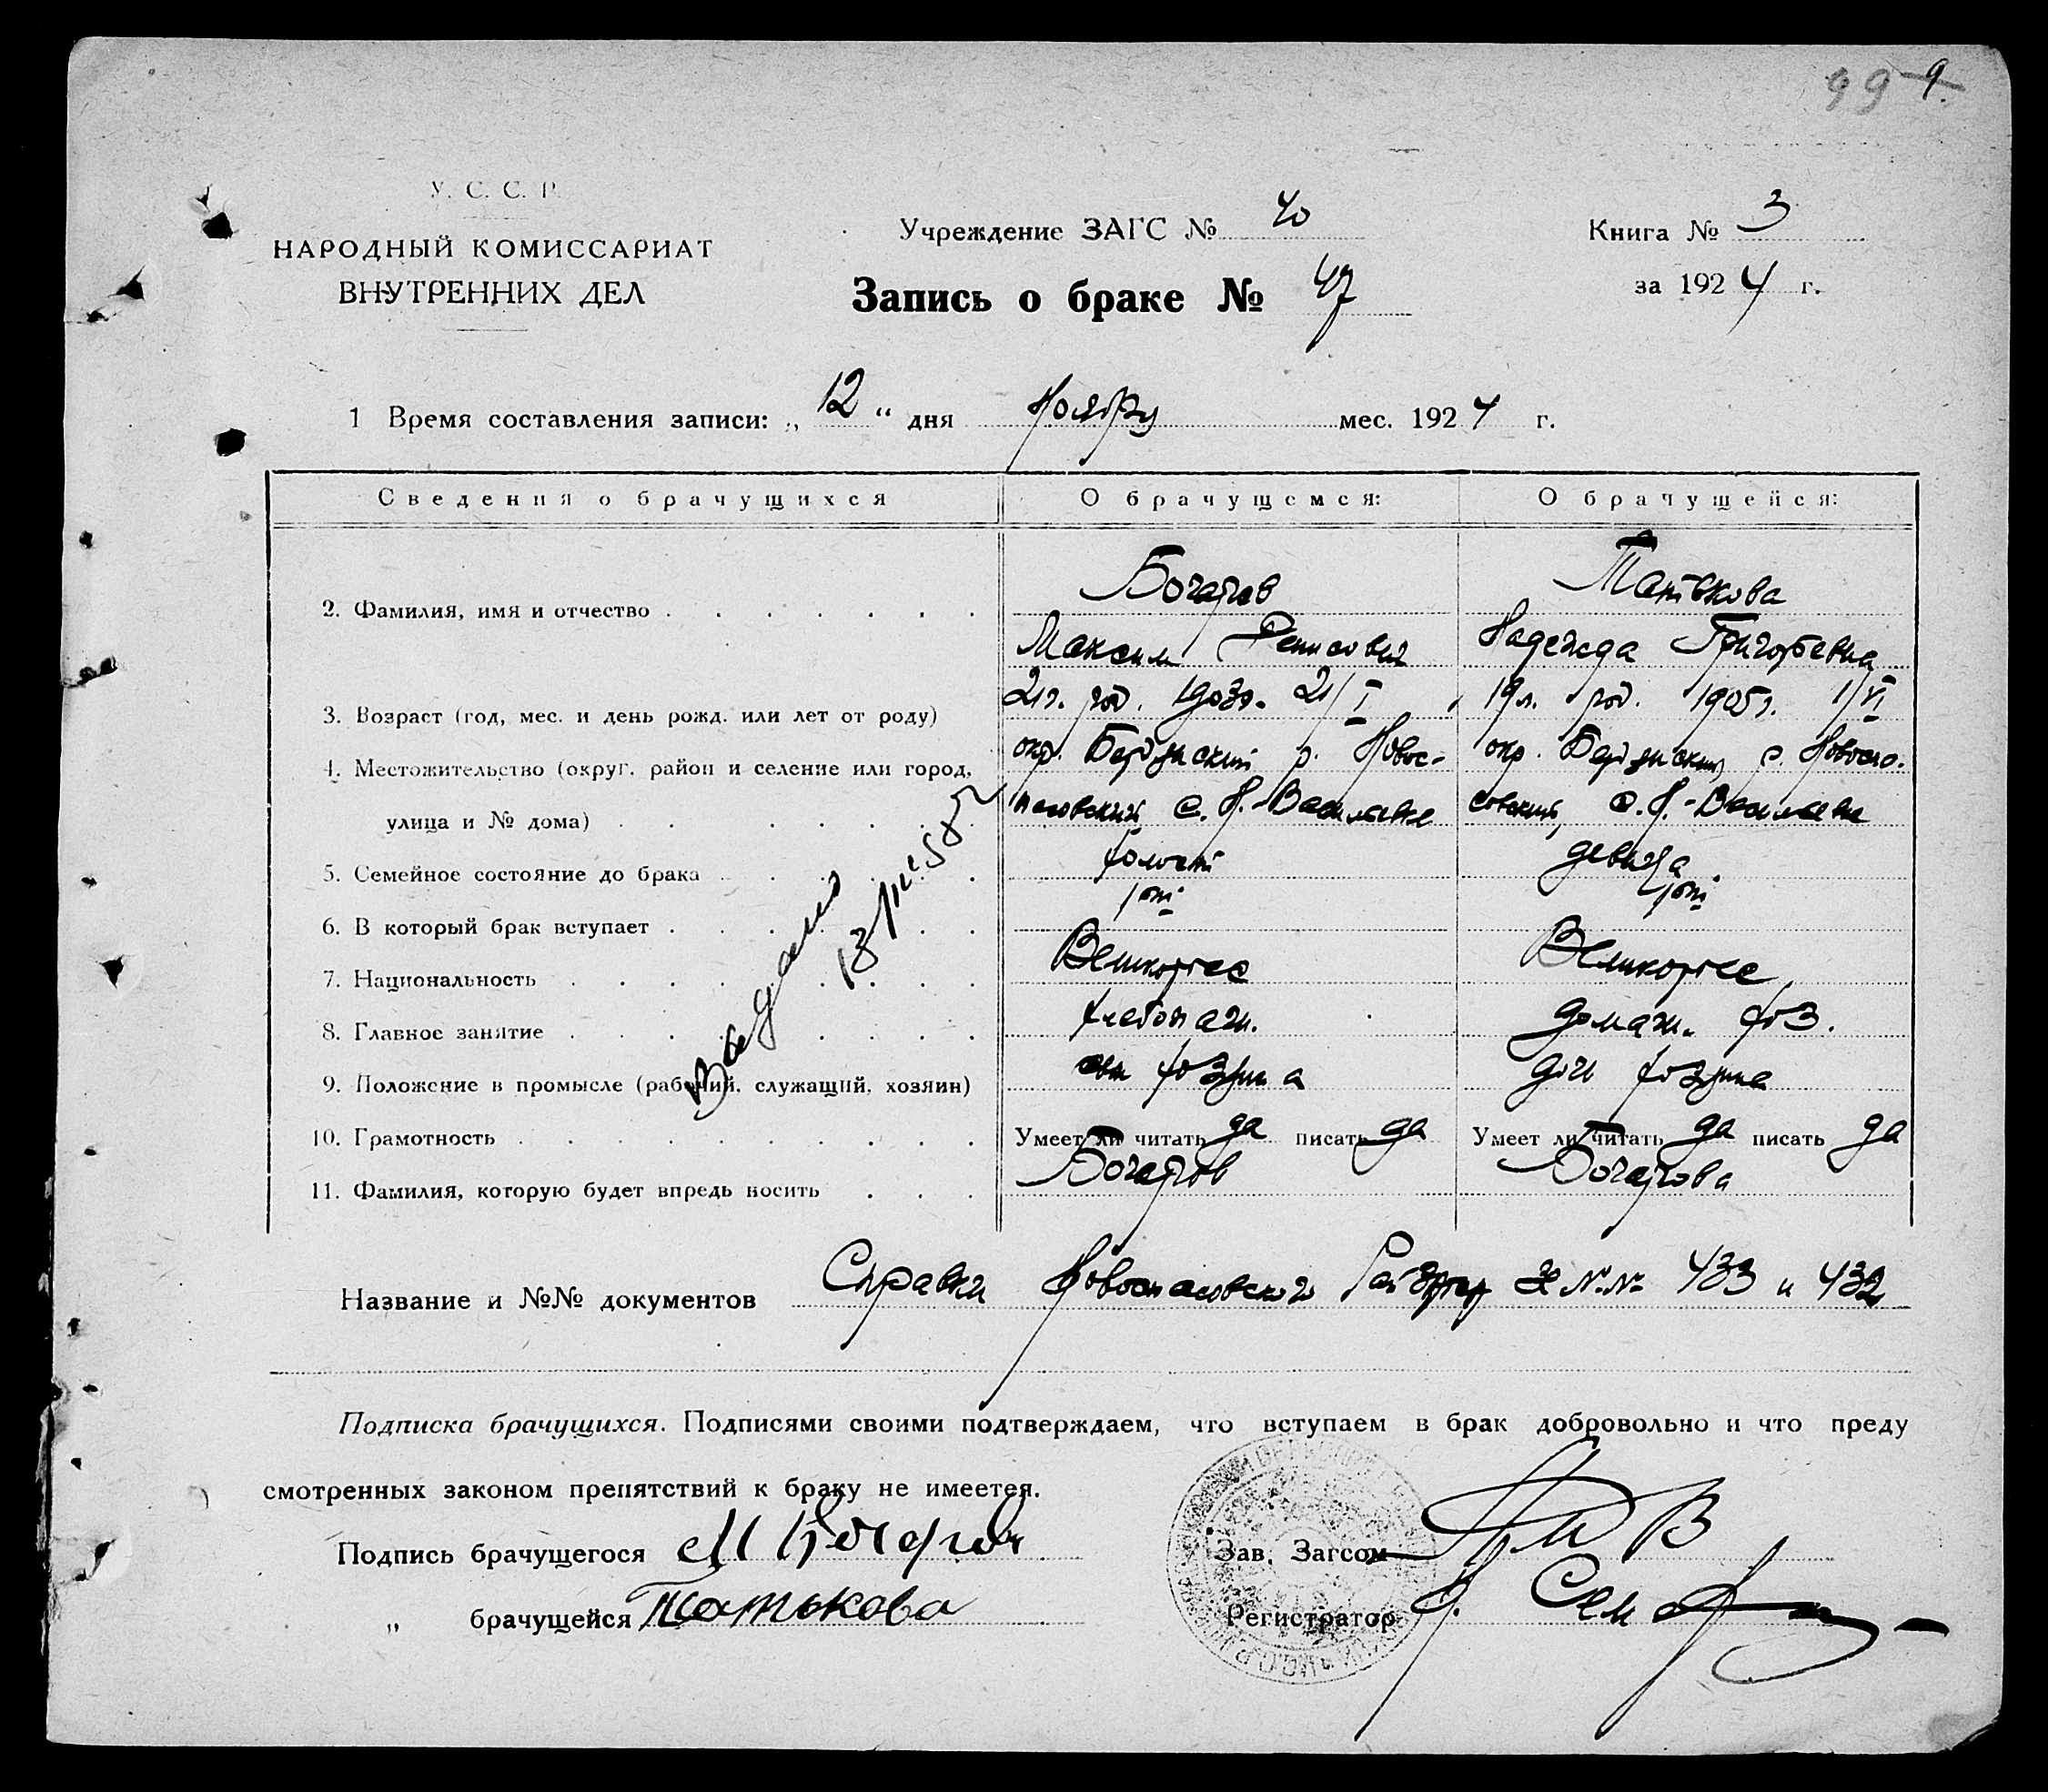 99 9.
У. С. С. Р.
НАРОДНЫЙ КОМИССАРИАТ
ВНУТРЕННИХ ДЕЛ
Учреждение ЗАГС № 40
Книга № 3
Запись о браке № 47
за 1924 г.
1 Время составления записи: „12“ дня Ноября мес. 1924 г.
Сведения о брачущихся О брачущемся: О брачущейся:
2. Фамилия, имя и отчество Богатов Татькова
Максим Денисович Надежда Григорьевна
3. Возраст (год, мес. и день рожд. или лет от роду) 21 г. род. 1903 г. 21/I 19 л. род. 1905 г. 1/VI
4. Местожительство (округ, район и селение или город, окр. Бердянский р. Новос- окр. Бердянский р. Новоспа-
улица и № дома) пасовский с. Н.-Васильевке совский, с. Н.-Васильевке
5. Семейное состояние до брака холост девица
6. В который брак вступает 1ый 1ый
7. Национальность Великорос Великорос
8. Главное занятие хлебопаш. домаш. хоз.
9. Положение в промысле (рабочий, служащий, хозяин) сын хозяина дочь хозяина
10. Грамотность Умеет ли читать да писать да Умеет ли читать да писать да
11. Фамилия, которую будет впредь носить
Выдано
Название и №№ документов Справки Новоспасовского за №№ 433 и 432
Подписка брачущихся. Подписями своими подтверждаем, что вступаем в брак добровольно и что преду
смотренных законом препятствий к браку не имеется.
Подпись брачущегося М
Зав. Загсом
„ брачущейся Татькова
Регистратор